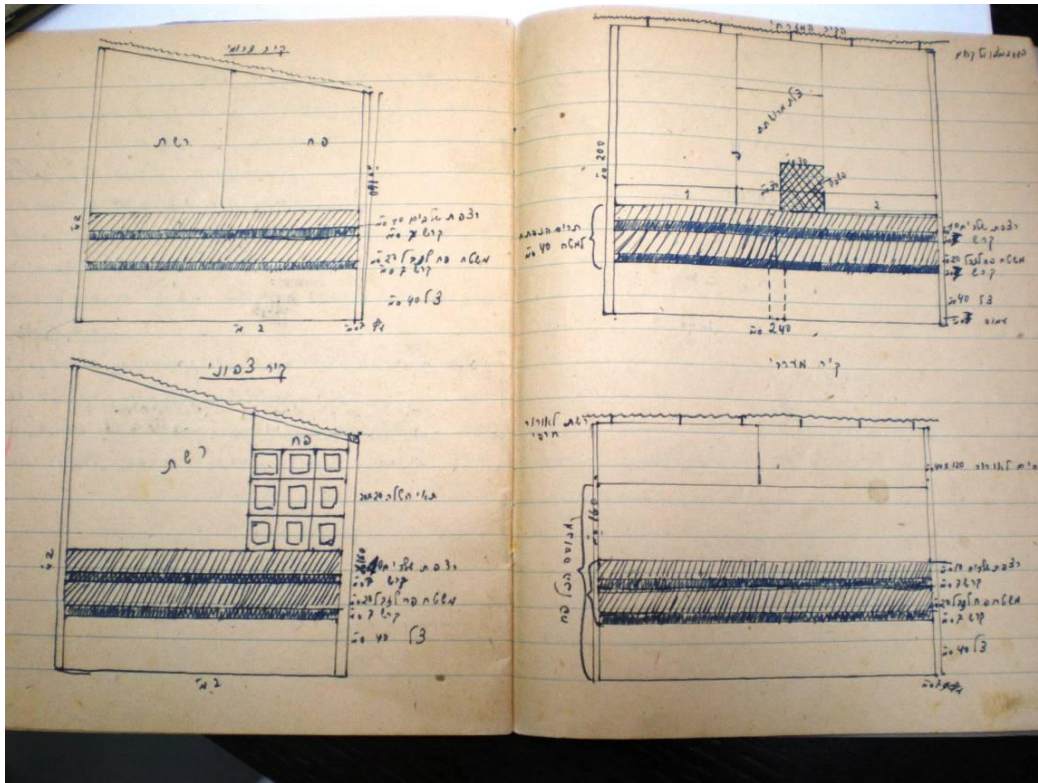 קיר דרומי
רשת
פח
2 מ'
רצפת שלבים 10 ס"מ
קרש 7 ס"מ
משטח פח לזבל 20 ס"מ
קרש 7 ס"מ
צל 40 ס"מ
2 מ'
קיר צפוני
רשת
פח
תאי הטלה
2 מ'
רצפת שלבים 10 ס"מ
קרש 7 ס"מ
משטח פח לזבל 20 ס"מ
קרש 7 ס"מ
צל 40 ס"מ
2 מ'
הקיר המזרחי
דלת מרשת
200 ס"מ
30
30 ס"מ
1
2
למטה 40 ס"מ
רצפת שלבים 10 ס"מ
קרש 7
משטח פח לזבל 20 ס"מ
קרש 7 ס"מ
צל 40 ס"מ
240 ס"מ
קיר מערבי
רשת לאורור
לאורור 120 X 40 ס"מ
160 ס"מ
מכוסה הכל פח
רצפת שלבים 10 ס"מ
קרש 7 ס"מ
משטח פח לזבל 20 ס"מ
קרש 7 ס"מ
צל 40 ס"מ